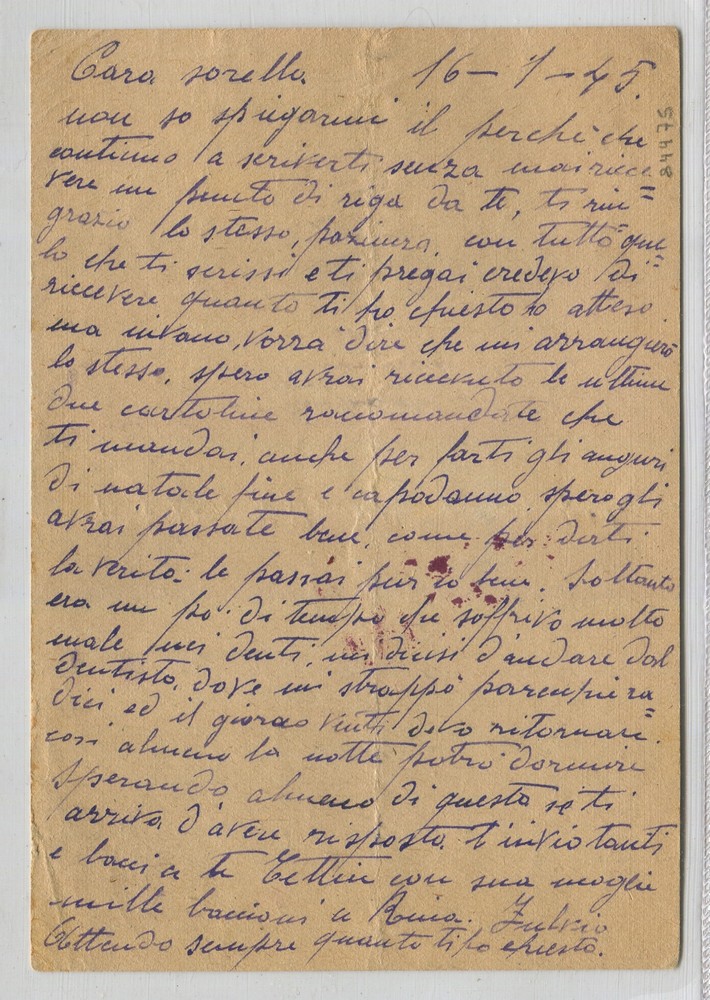 Cara sorella 16-1-45.
non so spiegarmi il perchè che
continuo a scriverti senza mai rice
vere un punto di riga da te, ti rin=
grazio lo stesso, pazienza, con tutto que=
lo che ti scrissi e ti pregai credevo di=
ricevere quanto ti ho chiesto o atteso
ma invano, vorrà dire che mi arrangierò
lo stesso, spero avrai ricevuto le ultime
due cartoline raccomandate che
ti mandai, anche per farti gli auguri
di natale fine e capodanno, spero gli
avrai passate bene, come per dirti
la verità le passai pur io bene. Soltanto
era un po' di tempo che soffrivo molto
male nei denti, mi decisi d'andare dal
dentista, dove mi strappò parecchie ra=
dici ed il giorno venti devo ritornare.
così almeno la notte potrò dormire
Sperando almeno di questa se ti
arriva d'avere risposta t'invio tanti
e baci a te Tettin con sua moglie
mille bacioni a Rina. Fulvio
Attendo sempre quanto ti ho chiesto.
8447S